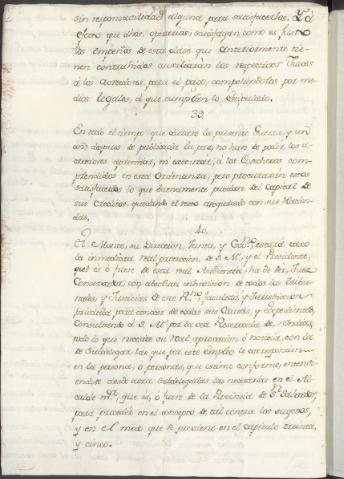 sin responsavilidad alguna para satisfacerlas. Y a
efecto que dhos. operarios, satisfagan como es justo
los empeños de esta clase que anteriormente tie-
nen contrahidos auxiliarán las respectivas Justicias
á los Acreedores, para el pago, compeliendolos por me-
dios legales, á que cumplan lo Estipulado.
39.
En todo el tiempo que durare la presente Guerra, y un
año despues de publicada la paz, no han de poder los A-
creedores apremiar, ni executar, á los Cosecheros com-
prehendidos en esta Ordenanza, pero procurarán estos
satisfacerles lo que buenamente puedan del Capital de
sus Creditos, quedando el resto asegurado con sus Hacien-
das.
40.
El Monte, su Direccion, Junta, y estará vaxo
la inmediata Real proteccion de S. M., y el Presidente,
que es ó fuere de esta Real Audiencia, ha de ser, Juez
Conservador, con absoluta inhivicion de todos los Tribu-
nales y Justicias de este Rno., facultad, y Jurisdiccion
privativa para conocer de todas sus Causas, y dependencias,
Consultando á S. M. por la via Reservada de Yndias,
todo lo que necesite su Real aprovacion ó noticia, con la
de Subdelegar las que por este Empleo le corresponden
en la persona, ó personas, que estime conforme, enten-
diendose desde ahora subdelegadas las necesarias en el Al-
calde mor. que es, ó fuere de la Provincia de Sn. Salvador,
para proceder en el concepto de tal contra los sugetos,
y en el modo que se previene en el capitulo treinta,
y cinco.